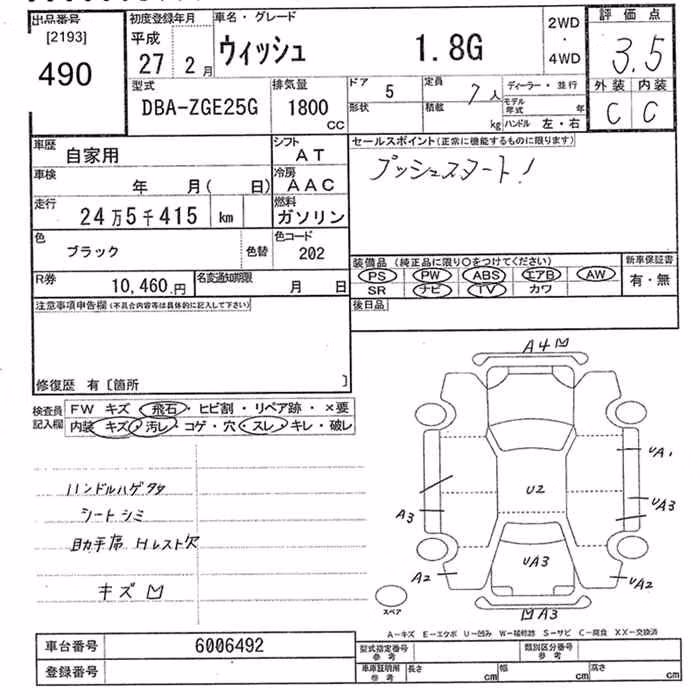 出品番号 初度登録年月 車名・グレード 評価点
[2193] 平成 ウィッシュ 1.8G 2WD・4WD 3.5
490 27 2月
型式 排気量 ドア 5 定員 7人 ディーラー・並行 外装 内装
DBA-ZGE25G 1800 CC 形状 積載 kg モデル年式 年 C C
ハンドル 左・右
車歴 自家用 シフト AT セールスポイント(正常に機能するものに限ります)
車検 年 月( 日) 冷房 AAC プッシュスタート!
走行 24万5千415 km 燃料 ガソリン
色 ブラック 色替 色コード 202
装備品(純正品に限り○をつけてください) 新車保証書
R券 10,460.円 名変通知期限 月 日 PS PW ABS エアB AW 有・無
SR ナビ TV カワ
注意事項申告欄(不具合内容等は具体的に記入して下さい) 後日品
修復歴 有[箇所 ]
検査員記入欄 FW キズ・飛石・ヒビ割・リペア跡・×要
内装 キズ・汚レ・コゲ・穴・スレ・キレ・破レ
A4
UA1
ハンドルハゲ
シートシミ U2
A3 UA3
助手席 Hレスト欠
UA3
A2 UA2
キズ
スペア A3
A-キズ E-エクボ U-凹み W-補修跡 S-サビ C-腐食 XX-交換済
車台番号 6006492 型式指定番号 参考 類別区分番号 参考
登録番号 車庫証明用 参考 長さ cm 幅 cm 高さ cm